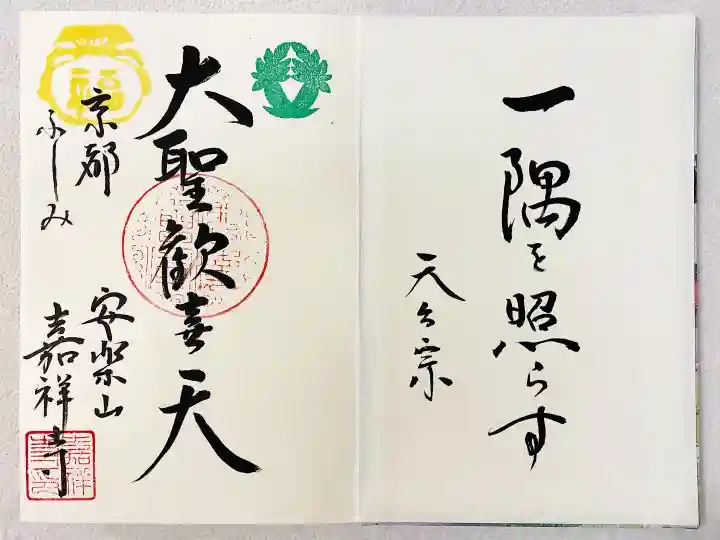 一隅を照らす
天台宗
大聖歓喜天
福
京都
ふしみ
安楽山
嘉祥寺
嘉祥